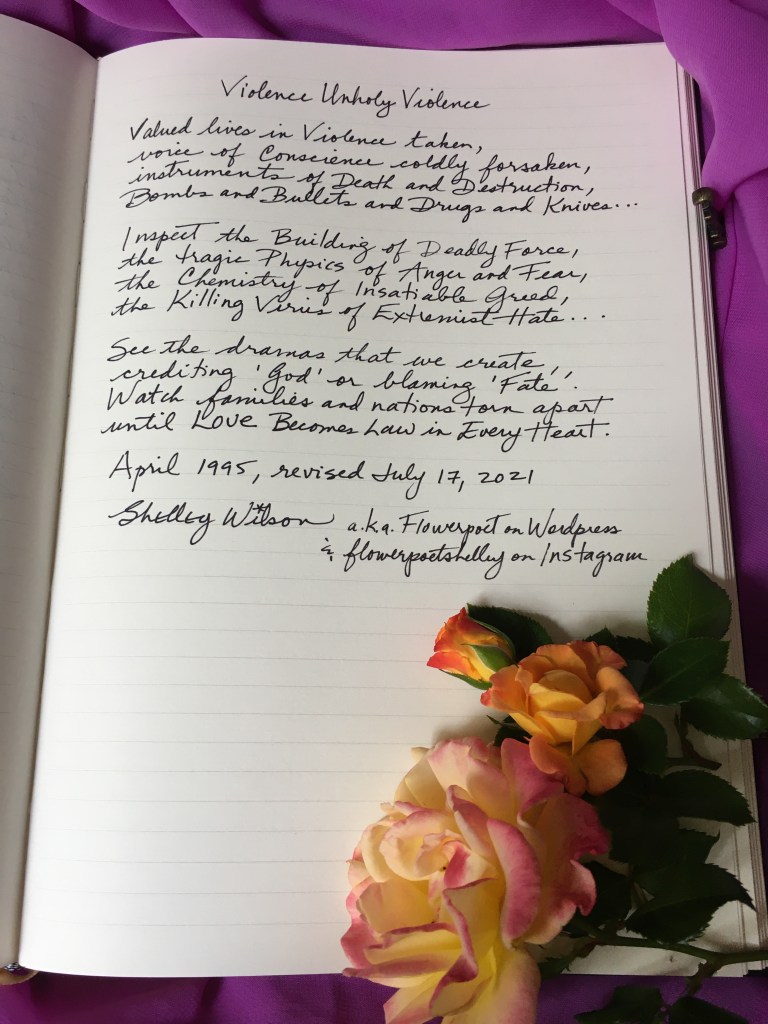 Violence Unholy Violence
Valued lives in Violence taken,
voice of Conscience coldly forsaken,
instruments of Death and Destruction,
Bombs and Bullets and Drugs and Knives...
Inspect the Building of Deadly Force,
the tragic Physics of Anger and Fear,
the Chemistry of Insatiable Greed,
the Killing Virus of Extremist Hate...
See the dramas that we create,
crediting 'God' or blaming 'Fate'.
Watch families and nations torn apart
until Love Becomes Law in Every Heart.
April 1995, revised July 17, 2021
Shelley Wilson a.k.a. Flowerpoet on Wordpress
& flowerpoetshelley on Instagram